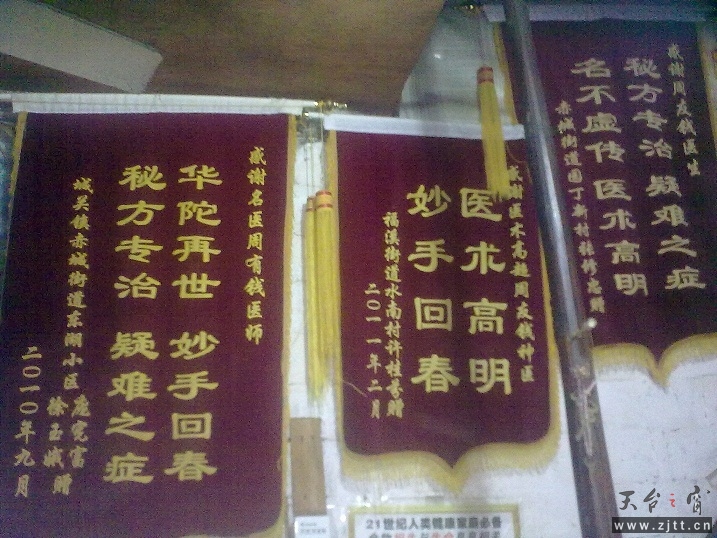 感谢名医周有钱医师
华陀再世 妙手回春
秘方专治 疑难之症
城关镇赤城街道东湖小区 庞宪富
徐玉娥 赠
二〇一〇年九月
感谢医术高超周友钱神医
医术高明
妙手回春
福溪街道水南村许桂芳赠
二〇一一年二月
感谢周友钱医生
秘方专治 疑难之症
名不虚传 医术高明
赤城街道园丁新村张修忠赠
21世纪人类健康家庭必备
天台之窗
www.zjtt.cn